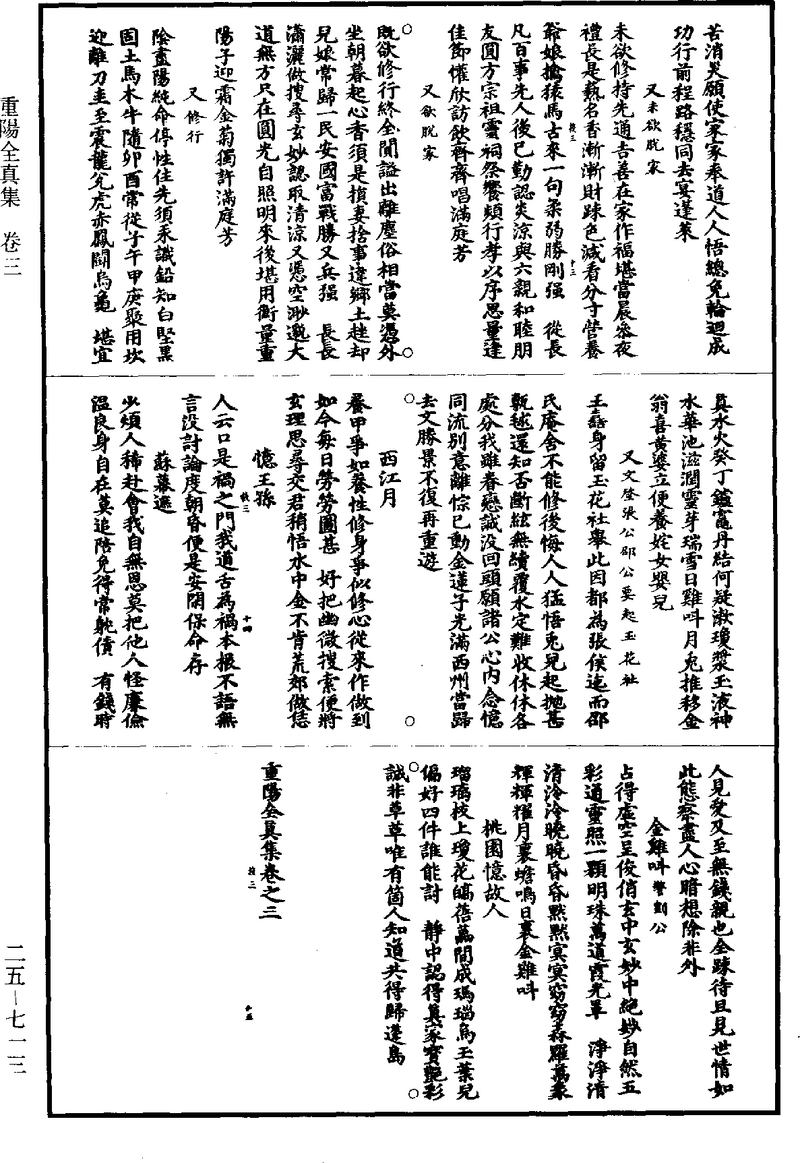 苦消災願使家家奉道人人悟總免輪迴成
功行前程路穩同去宴蓬萊
又未欲脫家
未欲修持先通吉善在家作福堪當晨參夜
禮長是熱名香漸漸財踈色減看分寸營養
爺娘擒猿馬古來一句柔弱勝剛强　從長
凡百事先人後已勤認炎涼與六親和睦朋
友圓方宗祖靈祠祭饗頻行孝以序思量逢
佳節懽欣訪飲齊齊唱滿庭芳
又欲脫家
既欲修行終全閒謐出離塵俗相當莫憑外
坐朝暮起心香須是損妻捨事違鄉土趖却
兒娘常歸一民安國富戰勝又兵强　長長
瀟灑做搜尋玄妙認取清涼又憑空渺邈大
道無方只在圓光自照明來後堪用衡量重
陽子迎霜金菊獨許滿庭芳
又修行
陰盡陽純命停性住先須汞識鉛知白堅黑
固土馬木牛隨卯酉常從子午甲庚聚用坎
迎離刀圭至震龍兊虎赤鳳鬭烏龜　堪宜
真水火癸丁鑪竈丹結何疑漱瓊漿玉液神
水華池滋潤靈芽瑞雪日雞呌月兔推移金
翁喜黃婆立便養姹女嬰兒
又文登張公邵公要起玉花社
王嚞身留玉花社舉此因都為張侯迄而邵
氏庵舍不能修後悔人人猛悟兎兒起抛甚
甎越還知否斷絃無續覆水定難收休休各
處分我雖眷戀誠没回頭願諸公心内念憶
同流别意離悰已動金蓮子光滿西州當歸
去文勝景不復再重遊
西江月
養甲爭如養性修身爭似修心從來作做到
如今每日勞勞圖甚　好把幽微搜索便將
玄理思尋交君稍悟水中金不肯荒郊做恁
憶王孫
人云口是禍之門我道舌為禍本根不語無
言没討論度朝昏便是安閒保命存
蘇幕遮
少煩人稀赴會我自無思莫把他人怪廉儉
溫良身自在莫追陪免得常躭債　有錢時
人見愛及至無錢親也全踈待且見世情如
此態察盡人心暗想除非外
金雞呌警劉公
占得虛空呈俊俏玄中玄妙中絕妙自然五
彩通靈照一顆明珠萬道霞光罩　淨淨清
清泠泠曉曉昏昏黙黙冥冥窈窈森羅萬象
輝輝耀月裏蟾鳴日裏金雞呌
桃園憶故人
瑠璃枝上瓊花皜蓓蕚間成瑪瑙烏玉葉兒
偏好四件誰能討　靜中認得真家寶艷彩
誠非草草唯有箇人知道共得歸蓬島
重陽全真集卷之三
重陽全真集　卷三
二五—七一三